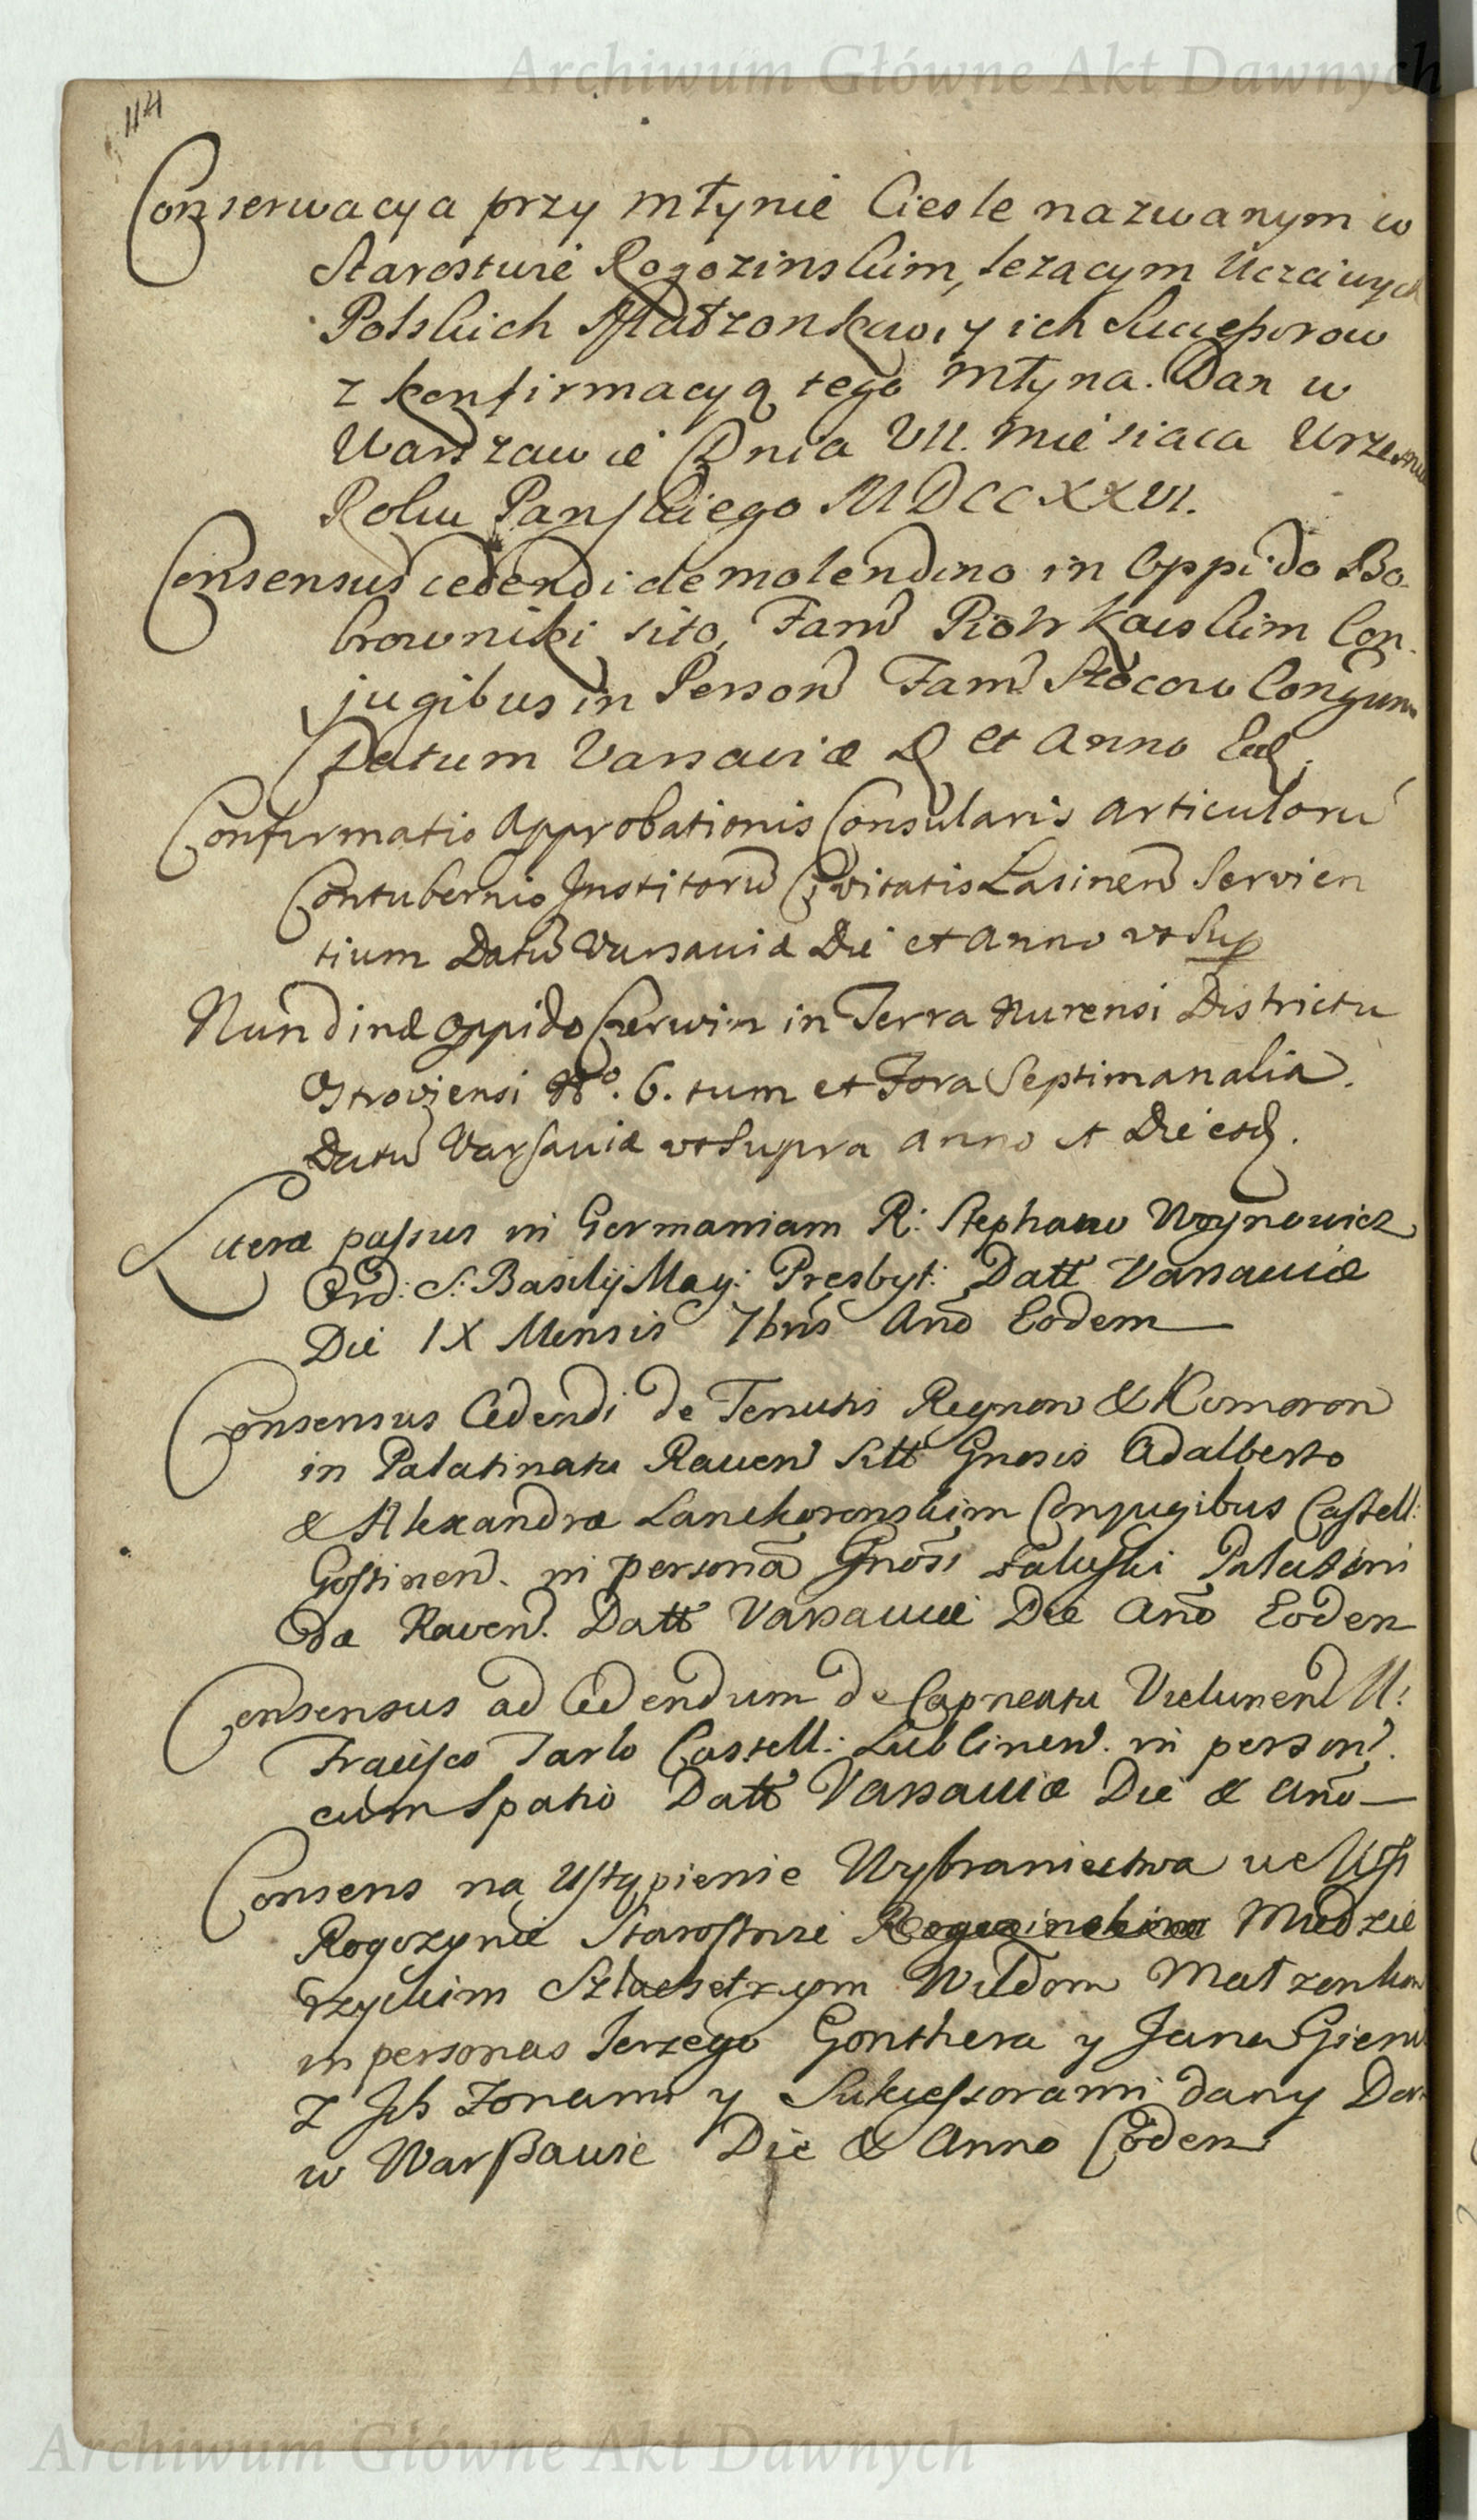 Archiwum Główne Akt Dawnych
114
Conserwacya przy młynie Ciesle nazwanym w
Starostwie Rogozinskim, lezącym Uczciwych
Polskich Małzonkow, y ich Successorow
z konfirmacyą tego Młyna. Dan w
Warszawie Dnia VII. Miesiaca Wrzesnia
Roku Panskiego MDCCXXVI.
Consensus cedendi de molendino in Oppido Bo-
browniki sito, Fam Piotrkowskim Con-
jugibus in Person Fam Stocow Conjum
Datum Varsaviæ D et Anno Eod.
Confirmatio Approbationis Consularis Articuloru
Contubernio Institoru Civitatis Lasinen Servien
tium Datu Varsaviæ Die et Anno ut Sup
Nundinæ Oppido Czerwin in Terra Nurensi Districtu
Ostroviensi No. 6. tum et Fora Septimanalia.
Datu Varsaviæ ut Supra anno et Die eod.
Literæ passus in Germaniam R: Stephano Woynowicz
Ord: S: Basilij Mag: Presbyt: Datt Varsaviæ
Die IX Mensis 7bris Ano Eodem
Consensus Cedendi de Tenutis Regnow & Komorow
in Palatinatu Raven sitt Gnosis Adalberto
& Alexandræ Lanckoronskim Conjugibus Castell:
Gostinen. in persona Gnosi Załuski Palatini
dæ Raven. Datt Varsaviæ Die Ano Eodem
Consensus ad Cedendum de Capneatu Vielunen M:
Francisco Tarlo Castell: Lublinen. in person.
cum Spatio Datt Varsaviæ Die & Ano
Consens na Ustąpienie Wybraniectwa we Wsi
Rogozynie Starostwie Rogozinskim Miedzie
rzyckim Szlachetnym Wildom Małzonkom
in personas Jerzego Gonthera y Jana
z Ich Zonami y Sukcessorami dany Dat
w Warszawie Die & Anno Eodem
Archiwum Główne Akt Dawnych